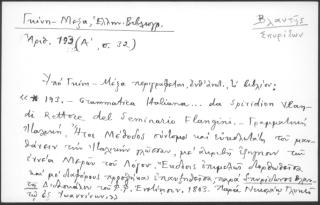 Γκίνη - Μέξα, Ἑλλην. Βιβλιογρ.
Βλαντῆς
Σπυρίδων
Ἀριθ. 193 (Α', σ. 32)
Ὑπό Γκίνη - Μέξα περιγράφεται, τὸ βιβλίον:
«* 193. - Grammatica Italiana... da Spiridion Vlan-
di Rettore del Seminario Flangini. - Γραμματική
Ἰταλική, Ἤτοι Μέθοδος σύντομος καί εὐκολωτάτη τοῦ μαν-
θάνειν τήν Ἰταλικήν γλῶσσαν, μέ ἀκριβῆ ἐξήγησιν τῶν
ἐννέα Μερῶν τοῦ Λόγου. Ἐκδοθεῖσα
καί μέ διαφόρους προσθήκας ἐπαυξηθεῖσα παρά Σπυρίδωνος Βλαν-
τῆ Διδασκάλου τοῦ Φ. Φ. Ἑνετίησιν, 1803. Παρά Νικολάῳ Γλυκεῖ
τῷ ἐξ Ἰωαννίνων.»